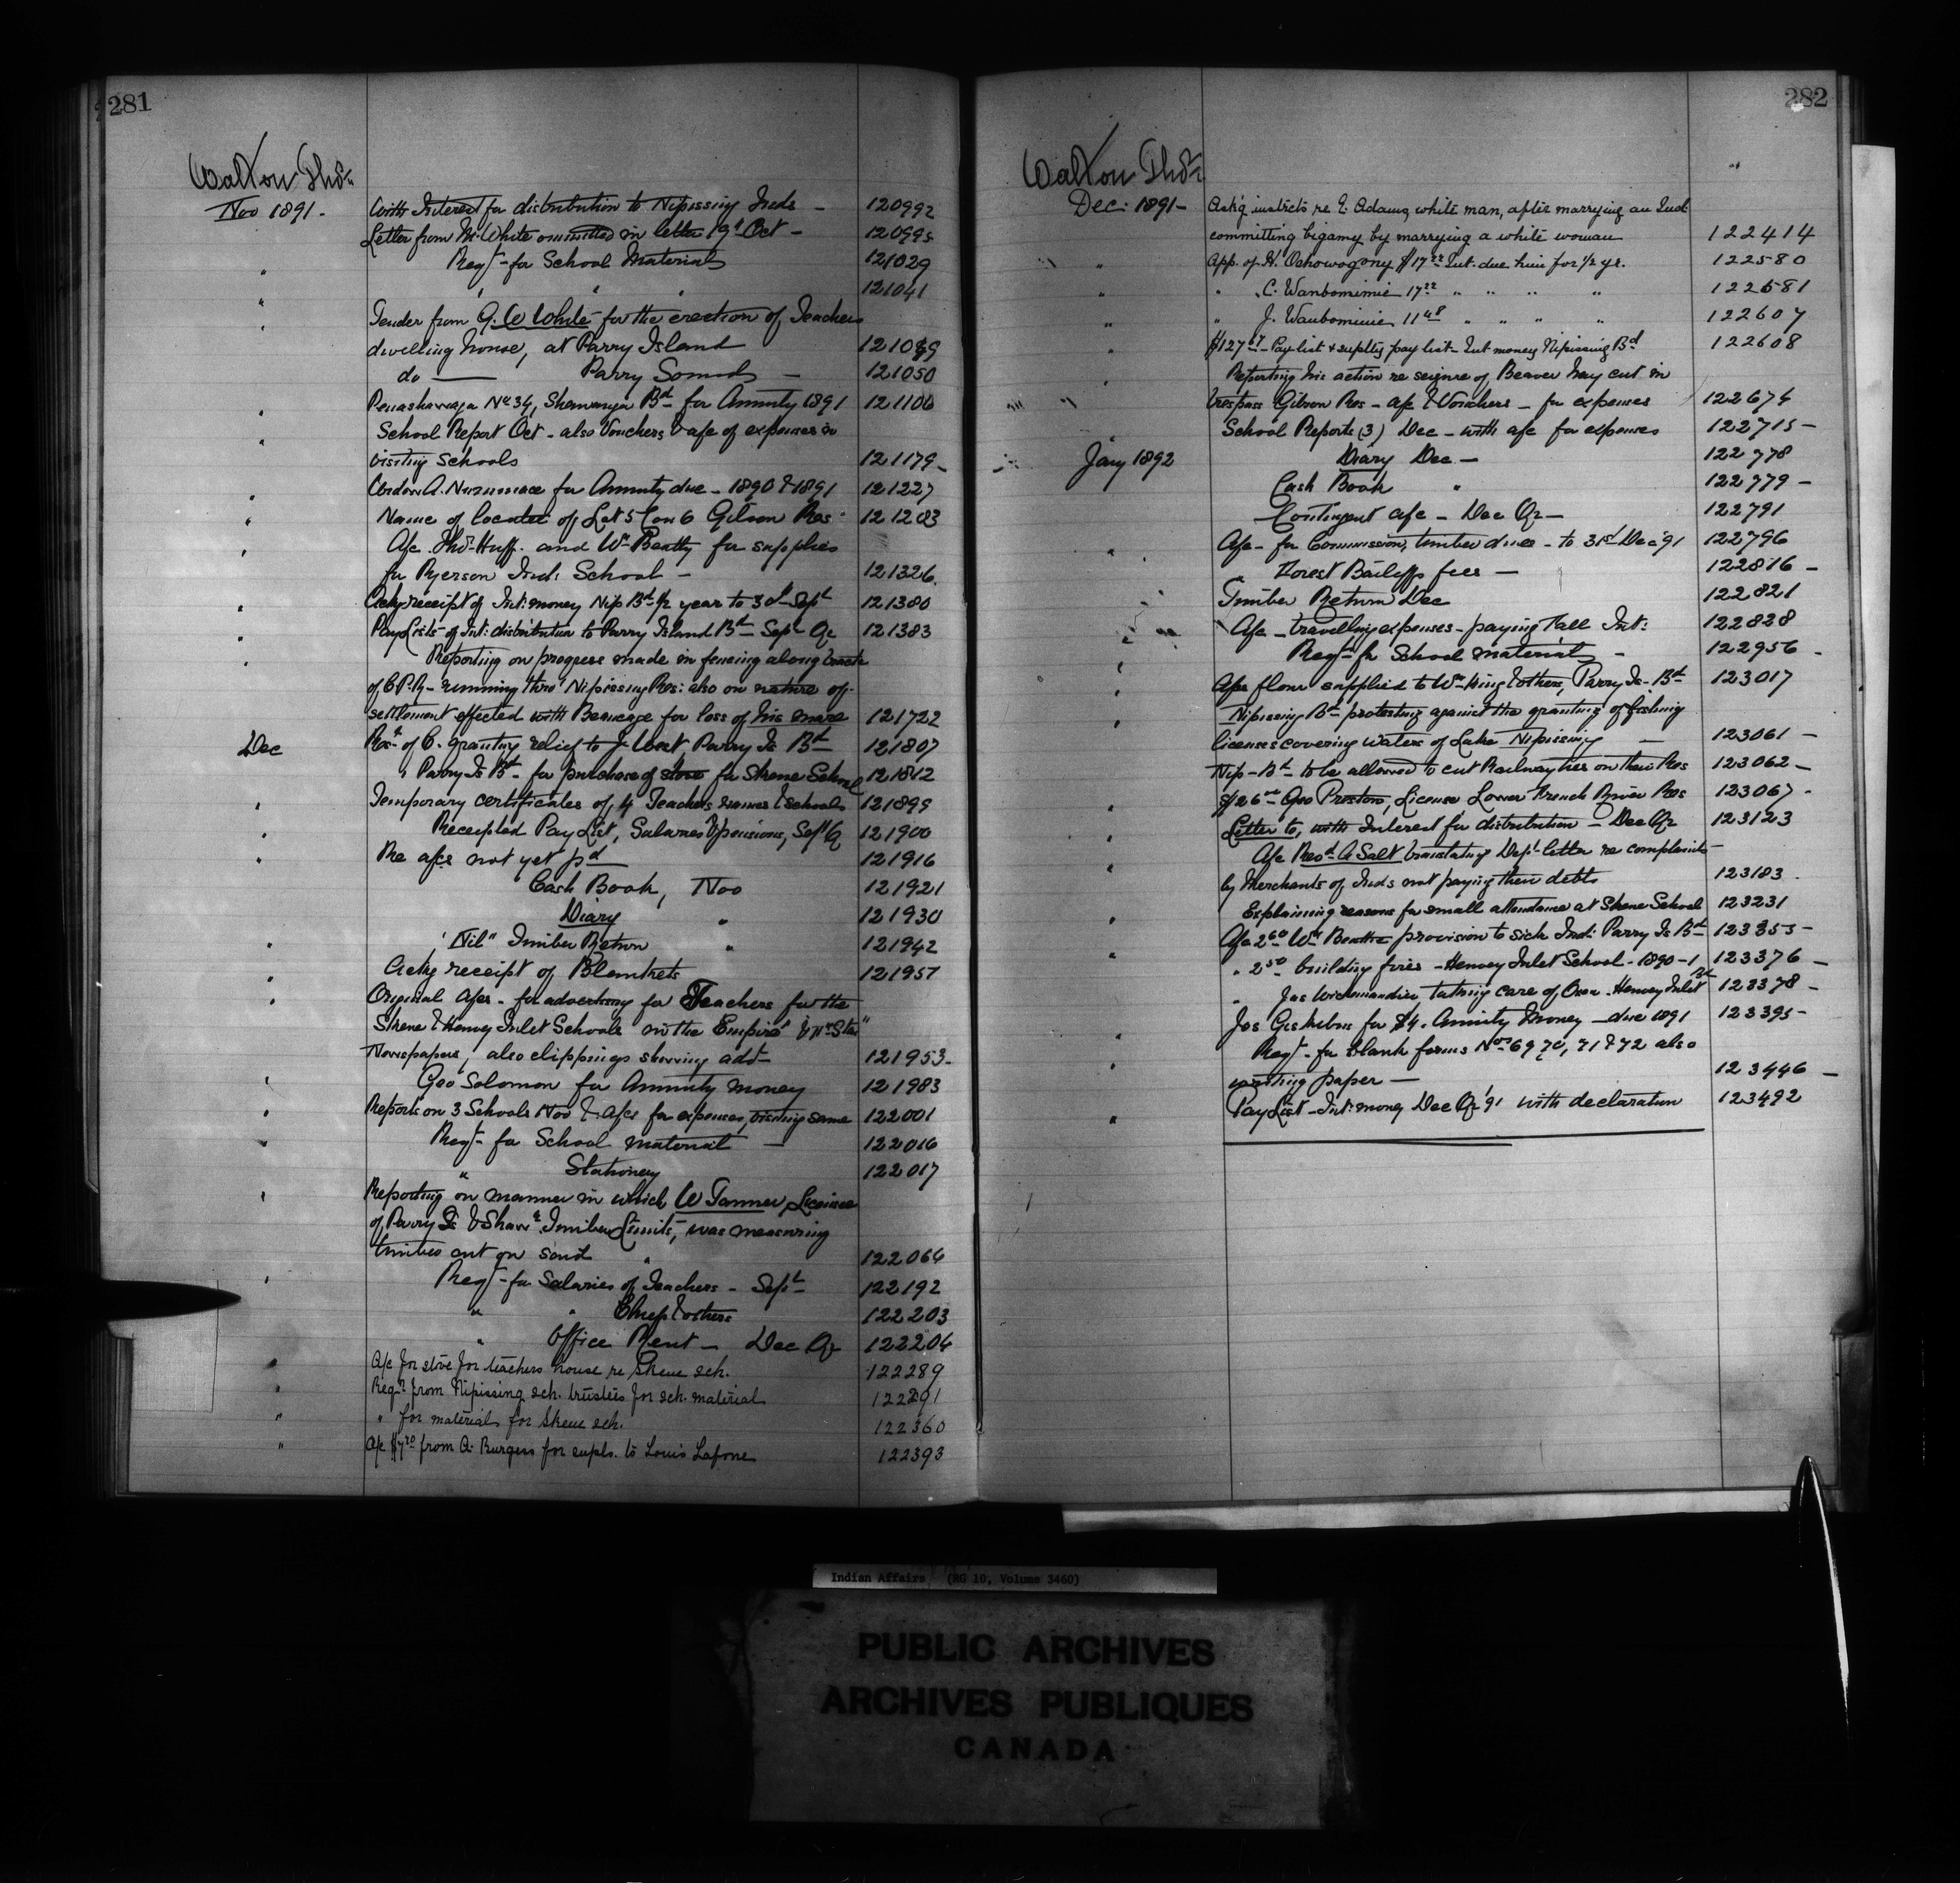 281
Walton Thos
Nov 1891 - With Interest for distribution to Nipissing Inds - 120992
Letter from M. White ommitted in letter 19t Oct - 120995
" Reqt - for School Materials 121029
" " " " 121041
" Tender from G. W White - for the erection of Teachers
dwelling house, at Parry Island 121049
do — Parry Sound - 121050
" No 34, Shawanaga Bd for Annuity 1891 121106
" School Report Oct - also Vouchers & a/c of expenses in
visiting Schools 121179 -
" A. for Annuity due - 1890 & 1891 121227
" Name of locatee of Lot 5 Con 6 Gibson Res - 121283
" A/c Thos Huff and Wm Beatty for supplies
for Ryerson Ind: School - 121326.
" Ackg receipt of Int: money Nip Bd ½ year to 30 Sept 121380
" Pay Lists of Int: distribution to Parry Island Bd Sept Qr 121383
" Reporting on progress made in fencing along track
of C.P.R - running thro' Nipissing Res: also on nature of
settlement effected with Beaucage for loss of his mare 121722
Dec Rest of C. granting relief to J. West Parry Is Bd 121807
" Parry Is Bd - for purchase of stove for Skene School 121812
" Temporary certificates of 4 Teachers names & schools 121899
" Receipted Pay List, Salaries & pensions, Sept Qr 121900
" Re a/cs not yet pd 121916
Cash Book, Nov 121921
Diary " 121930
" "Nil" Timber Return " 121942
" Ackg receipt of Blankets 121957
" Original a/cs - for advertising for Teachers for the
Skene & Henvey Inlet Schools in the "Empire" & "N. Star"
Newspapers, also clippings showing advt 121953 -
" Geo Solomon for Annuity money 121983
" Reports on 3 Schools Nov & a/cs for expenses, visiting same 122001
" Reqt - for School material — 122016
" Stationery 122017
" Reporting on manner in which W Tanner, Licensee
of Parry Is & Shaw: Timber Limits, was measuring
timber cut on said " 122064
" Reqt - for Salaries of Teachers - Sept 122192
" " Chief & others 122203
" Office Rent - Dec Qr 122204
" A/c for stove for teachers house re Skene sch. 122289
" Reqn from Nipissing sch. trustees for sch. material 122291
" " for material for Skene sch. 122360
" A/c $7.20 from A. Burgess for supls. to Louis Lafone 122393
282
Walton Thos
Dec: 1891 - Ask'g instrcts re E. Adams, white man, after marrying an Ind
committing bigamy by marrying a white woman 122414
" App. of H. Oshowogony $17.22 Int. due him for ½ yr. 122580
" " C. Wanbomimie 17.22 " " " " 122581
" " J. Waubominie 11.48 " " " " 122607
" $127 - Pay list & supltry pay list - Int money Nipissing Bd 122608
" Reporting his action re seizure of Beaver hay cut in
trespass Gibson Res - a/c & Vouchers - for expenses 122674
" School Reports (3) Dec - with a/c for expenses 122715 -
Jany 1892 Diary Dec - 122778
Cash Book " 122779 -
Contingent a/c - Dec Qr - 122791
" A/c - for Commission, timber dues - to 31st Dec '91 122796
" Forest Bailiffs fees - 122816 -
Timber Return Dec 122821
" A/c - travelling expenses - paying Fall Int: 122828
" Reqt - for School material - 122956 -
" A/cs flour supplied to Wm King & others, Parry Is - Bd 123017
" Nipissing Bd protesting against the granting of fishing
licenses covering waters of Lake Nipissing — 123061 -
Nip - Bd to be allowed to cut Railway ties on their Res 123062 -
" $26 Geo Preston, License Lower French River Res 123067 -
" Letter to, with Interest for distribution - Dec Qr 123123
" A/c Revd A Salt translating Dept letter re complaints
by Merchants of Inds not paying their debts 123183 -
Explaining reasons for small attendance at Skene School 123231
" A/c 2.60 Wm Beattie provision to sick Ind: Parry Is Bd 123353 -
" " 2.50 building fires - Henvey Inlet School - 1890-1 123376 -
" Jas taking care of Oxen - Henvey Inlet Bd 123378 -
" Jos for $4. Annuity Money - due 1891 123395 -
" Reqt - for blank forms Nos 69, 70, 71 & 72 also
writing paper — 123446 -
" Pay List - Int: money Dec Qr '91 with declaration 123492
Indian Affairs (RG 10, Volume 3460)
PUBLIC ARCHIVES
ARCHIVES PUBLIQUES
CANADA